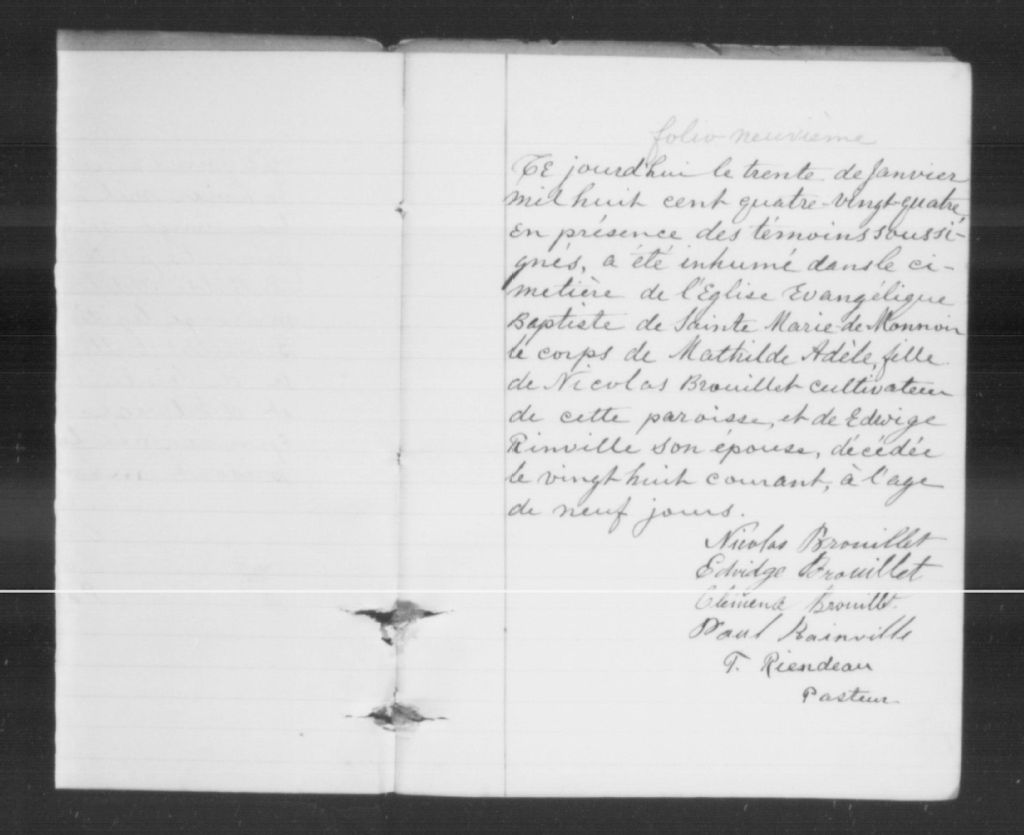 folio neuvième
CE jourd'hui le trente de Janvier
mil huit cent quatre-vingt-quatre,
en présence des témoins soussi-
gnés, a été inhumé dans le ci-
metière de l'Eglise Evangélique
Baptiste de Sainte Marie-de-Monnoir
le corps de Mathilde Adèle, fille
de Nicolas Brouillet cultivateur
de cette paroisse, et de Edwige
Rinville son épouse, décédée
le vingt huit courant, à l'age
de neuf jours.
Nicolas Brouillet
Edvidge Brouillet
Brouillet
Paul Rainville
T. Riendeau
Pasteur